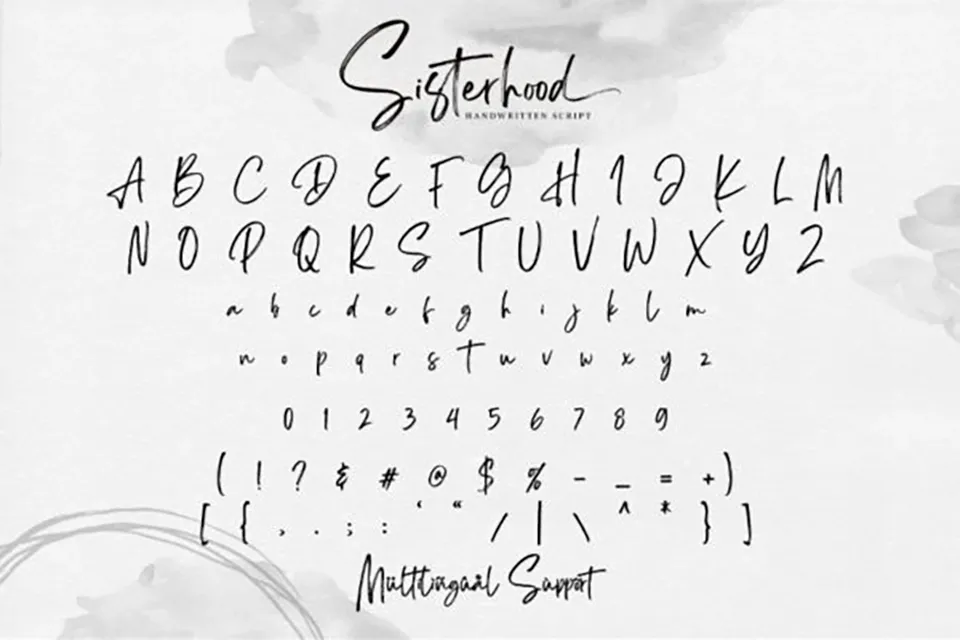 Sisterhood
HANDWRITTEN SCRIPT
A B C D E F G H I J K L M
N O P Q R S T U V W X Y Z
a b c d e f g h i j k l m
n o p q r s t u v w x y z
0 1 2 3 4 5 6 7 8 9
( ! ? & # @ $ % - _ = + )
[ { , . ; : ‘ “ / | \ ^ * } ]
Multilingual Support